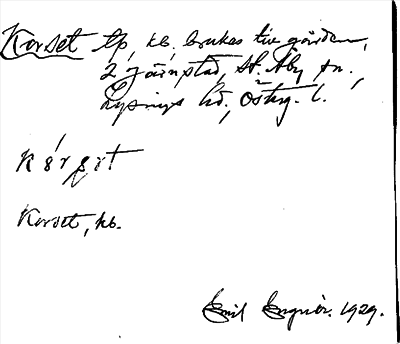 Korset tp, kb, brukas till gården,
2 Järnstad, St. Åby sn.,
Lysings hd, Östg. l.
Korset, kb.
Emil Engnér. 1929.